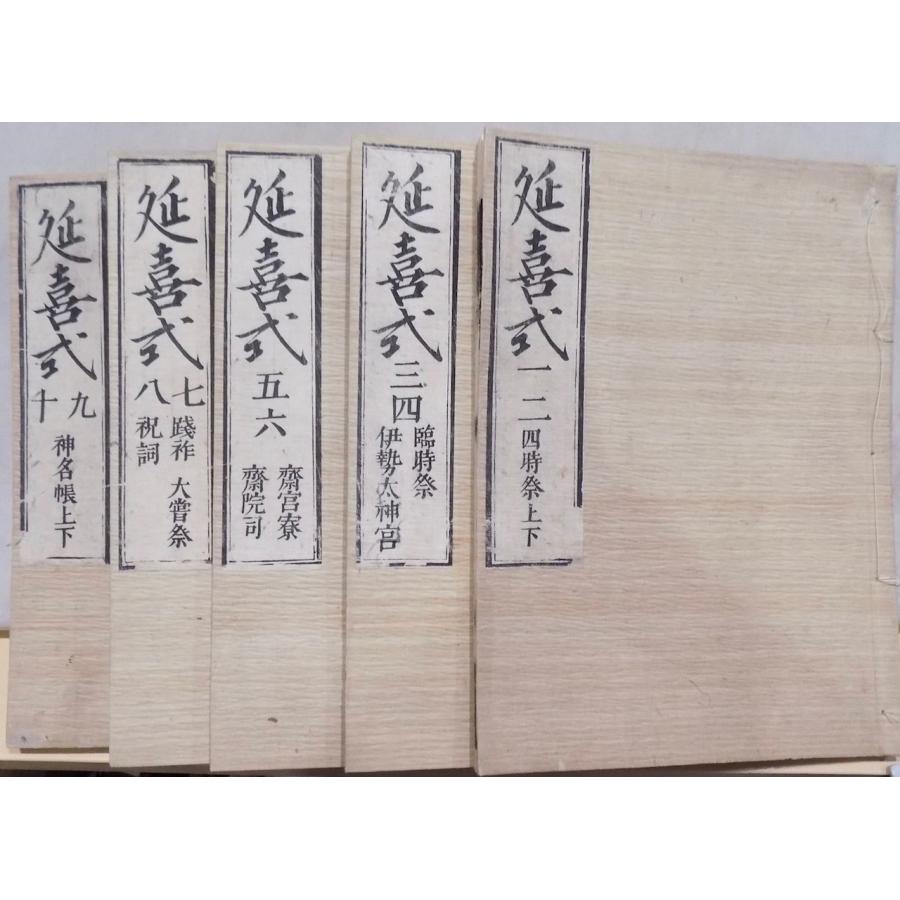 延喜式 一 二 四時祭上下
延喜式 三四 臨時祭
伊勢太神宮
延喜式 五六 齋宮寮
齋院司
延喜式 七 踐祚 大嘗祭
八 祝詞
延喜式 九
十 神名帳上下